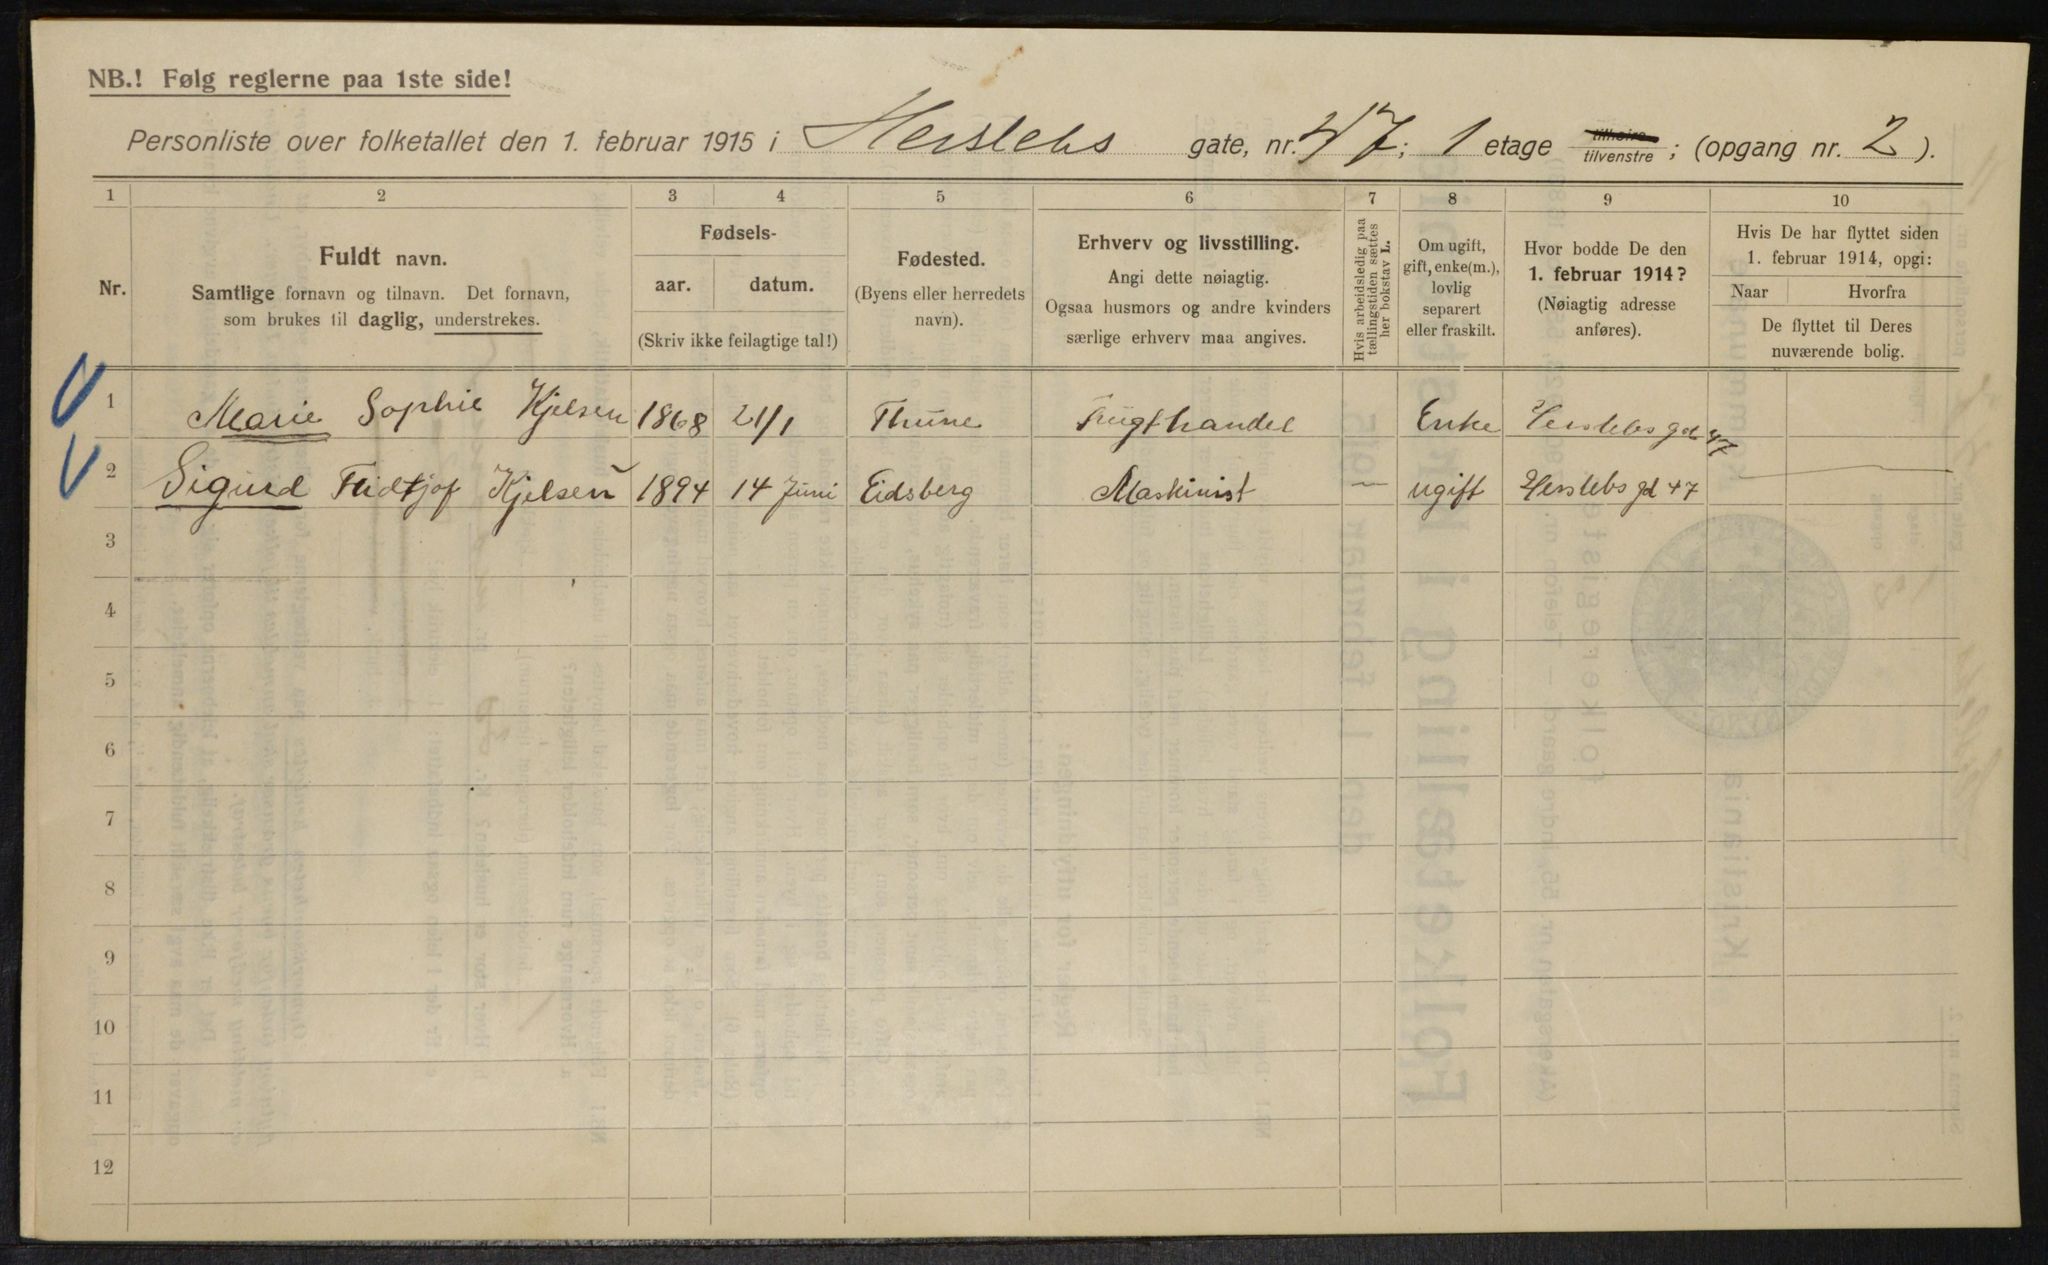 NB.! Følg reglerne paa 1ste side!
Personliste over folketallet den 1. februar 1915 i Herslebs gate, nr. 47; 1 etage tilhøire tilvenstre ; (opgang nr. 2 ).
1 2 3 4 5 6 7 8 9 10
Nr.
Fuldt navn.
Samtlige fornavn og tilnavn. Det fornavn,
som brukes til daglig, understrekes.
Fødsels-
aar. datum.
(Skriv ikke feilagtige tal!)
Fødested.
(Byens eller herredets
navn).
Erhverv og livsstilling.
Angi dette nøiagtig.
Ogsaa husmors og andre kvinders
særlige erhverv maa angives.
Hvis arbeidsledig paa
tællingstiden sættes
her bokstav L.
Om ugift,
gift, enke(m.),
lovlig
separert
eller fraskilt.
Hvor bodde De den
1. februar 1914?
(Nøiagtig adresse
anføres).
Hvis De har flyttet siden
1. februar 1914, opgi:
Naar Hvorfra
De flyttet til Deres
nuværende bolig.
1 Marie Sophie Kjelsen 1868 21/1 Thune Frugthandel Enke Herslebs gd 47
2 Sigurd Fridtjof Kjelsen 1894 14 Juni Eidsberg Maskinist — ugift Herslebs gd 47
3
4
5
6
7
8
9
10
11
12